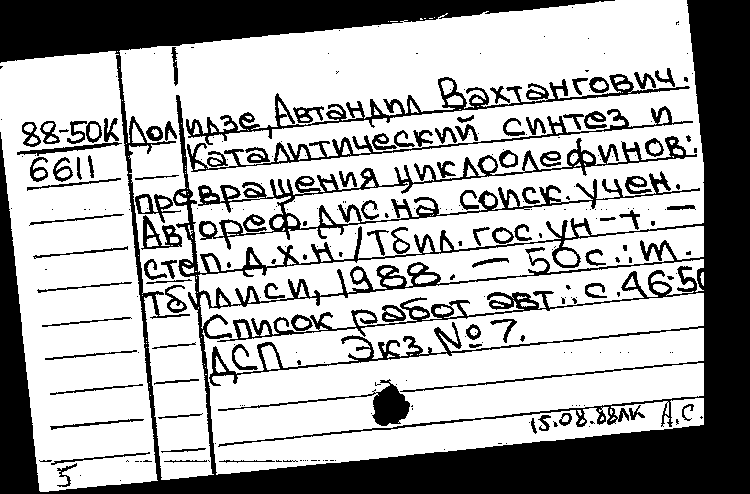 88-50К Долидзе, Автандил Вахтангович.
6611 Каталитический синтез и
превращения циклоолефинов:
Автореф. дис. на соиск. учен.
степ. д.х.н. / Тбил. гос. ун-т. —
Тбилиси, 1988. — 50 с.: т.
Список работ авт.: с. 46-50
ДСП. Экз. № 7.
15.08.88ЛК А.С.
5